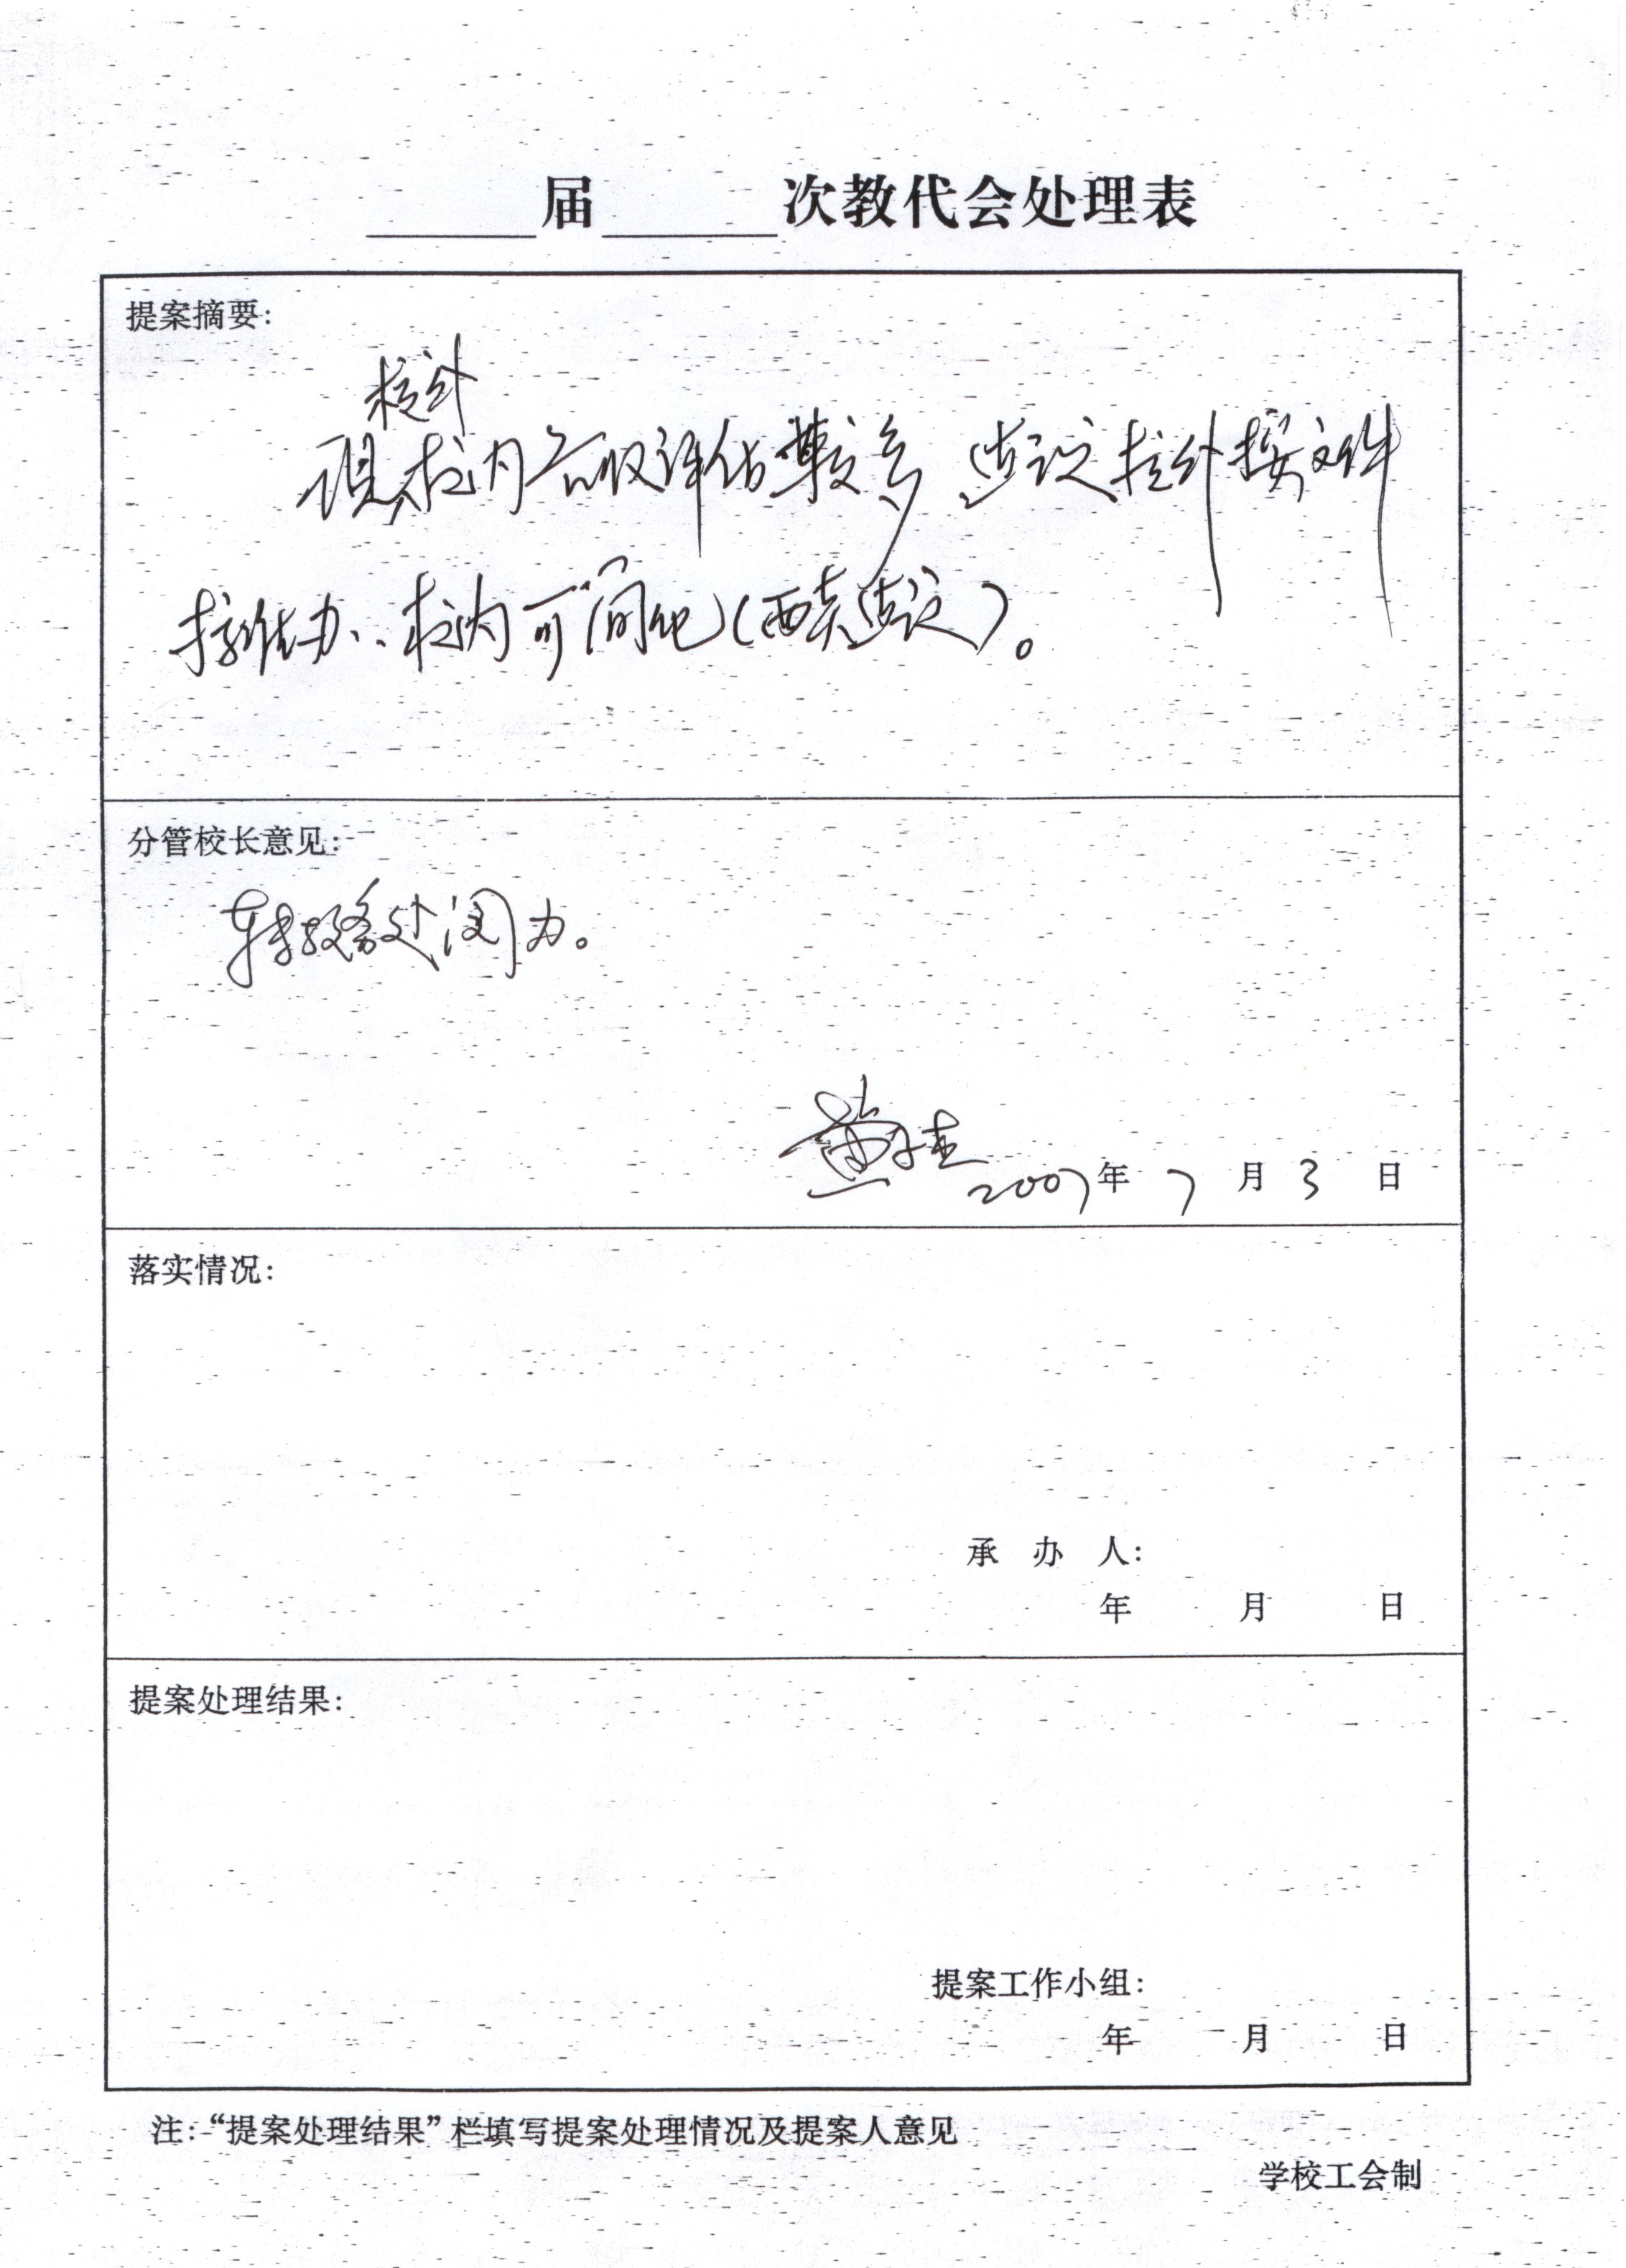 届 次教代会处理表
提案摘要:
校外
现校内各级评估较多 建议校外按文件
校内可简化(西袁建议)。
分管校长意见:
转教务处阅办。
2007年 7 月 3 日
落实情况:
承 办 人:
年 月 日
提案处理结果:
提案工作小组:
年 月 日
注:“提案处理结果”栏填写提案处理情况及提案人意见
学校工会制